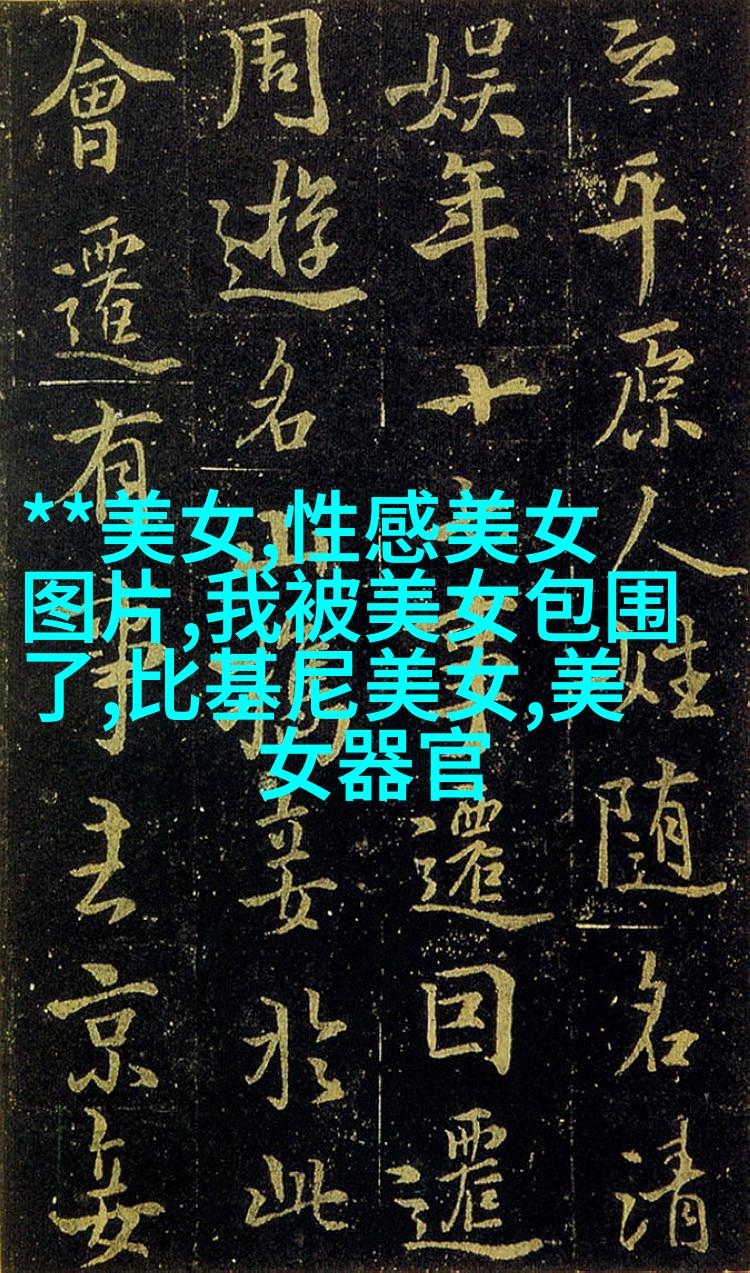 之平原人姓随名清
娱年十遷回遷
周遊名山於此
會遷有事去京
**美女,性感美女
图片,我被美女包围
了,比基尼美女,美
女器官